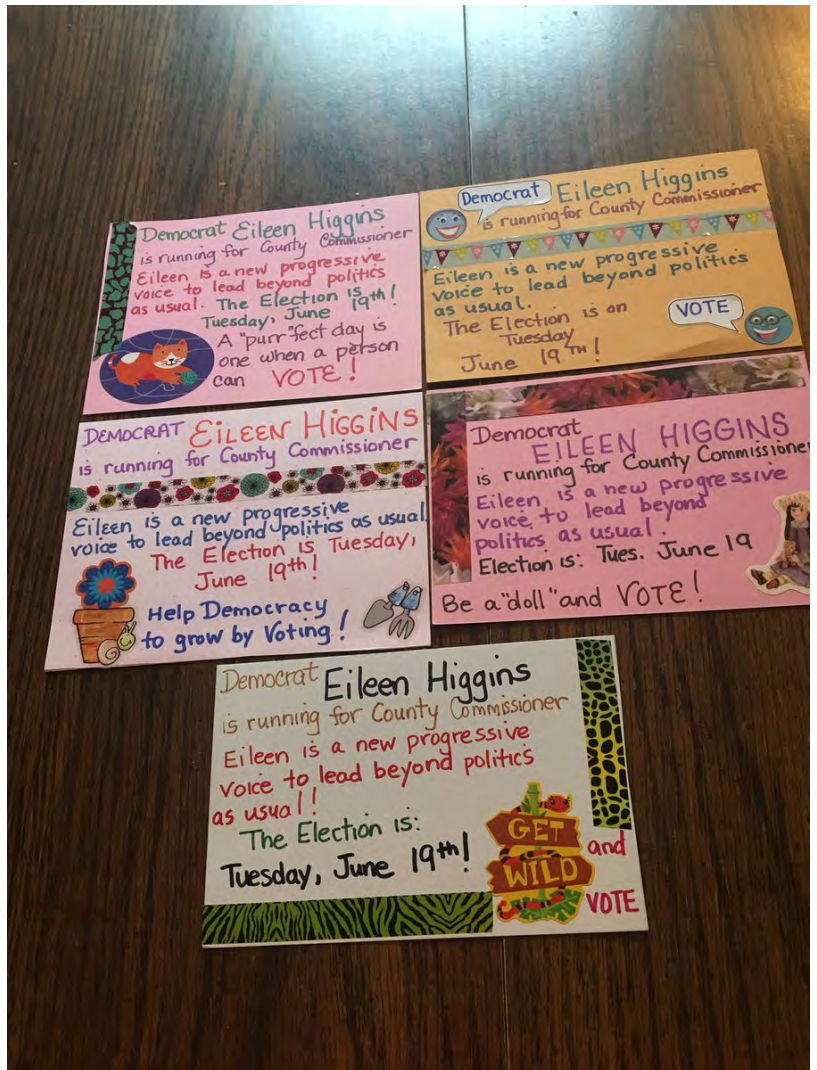 Democrat Eileen Higgins
is running for County Commissioner
Eileen is a new progressive
voice to lead beyond politics
as usual. The Election is
Tuesday, June 19th!
A "purr"fect day is
one when a person
can VOTE!
Democrat Eileen Higgins
is running for County Commissioner
Eileen is a new progressive
voice to lead beyond politics
as usual.
The Election is on
Tuesday
June 19TH!
VOTE
DEMOCRAT EILEEN HIGGINS
is running for County Commissioner
Eileen is a new progressive
voice to lead beyond politics as usual
The Election is Tuesday,
June 19th!
Help Democracy
to grow by Voting!
Democrat
EILEEN HIGGINS
is running for County Commissioner
Eileen is a new progressive
voice to lead beyond
politics as usual.
Election is: Tues. June 19
Be a "doll" and VOTE!
Democrat Eileen Higgins
is running for County Commissioner
Eileen is a new progressive
voice to lead beyond politics
as usual!
The Election is:
Tuesday, June 19th!
GET
WILD
and
VOTE